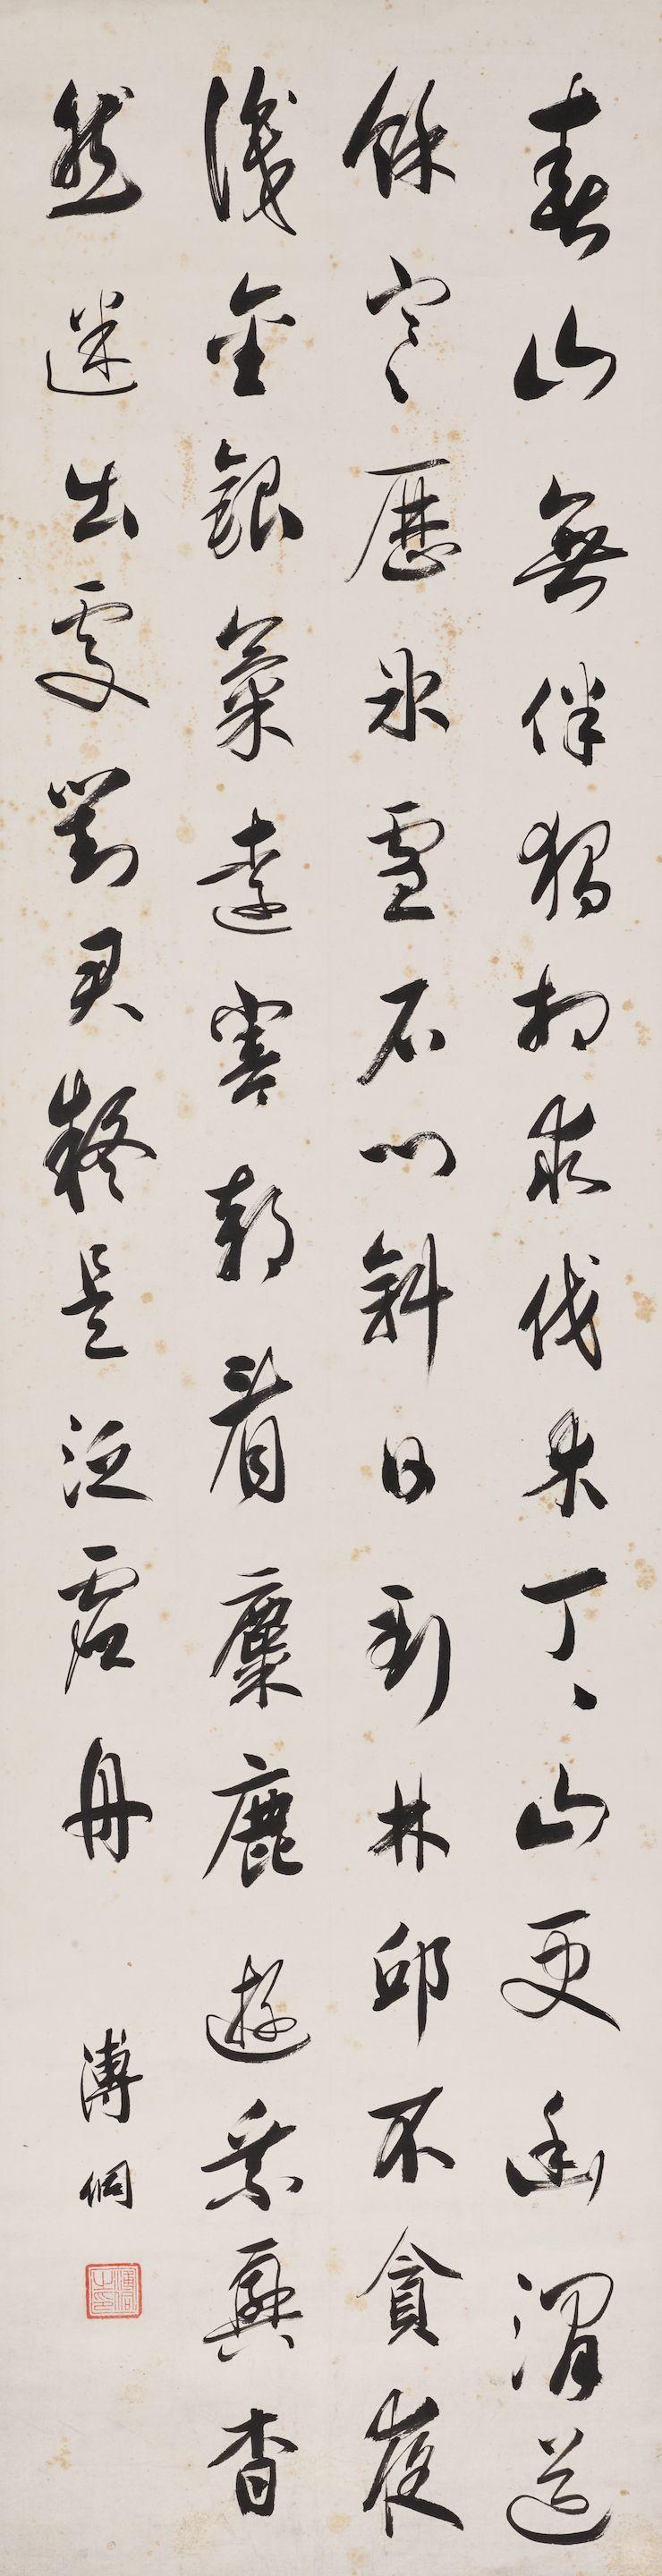 春山無伴獨相求伐木丁丶山更幽澗道
餘寒歷冰雪石門斜日到林邱不貪夜
識金銀氣遠害朝看麋鹿遊乘興杳
然迷出處對君疑是泛虛舟
溥侗
溥侗之印